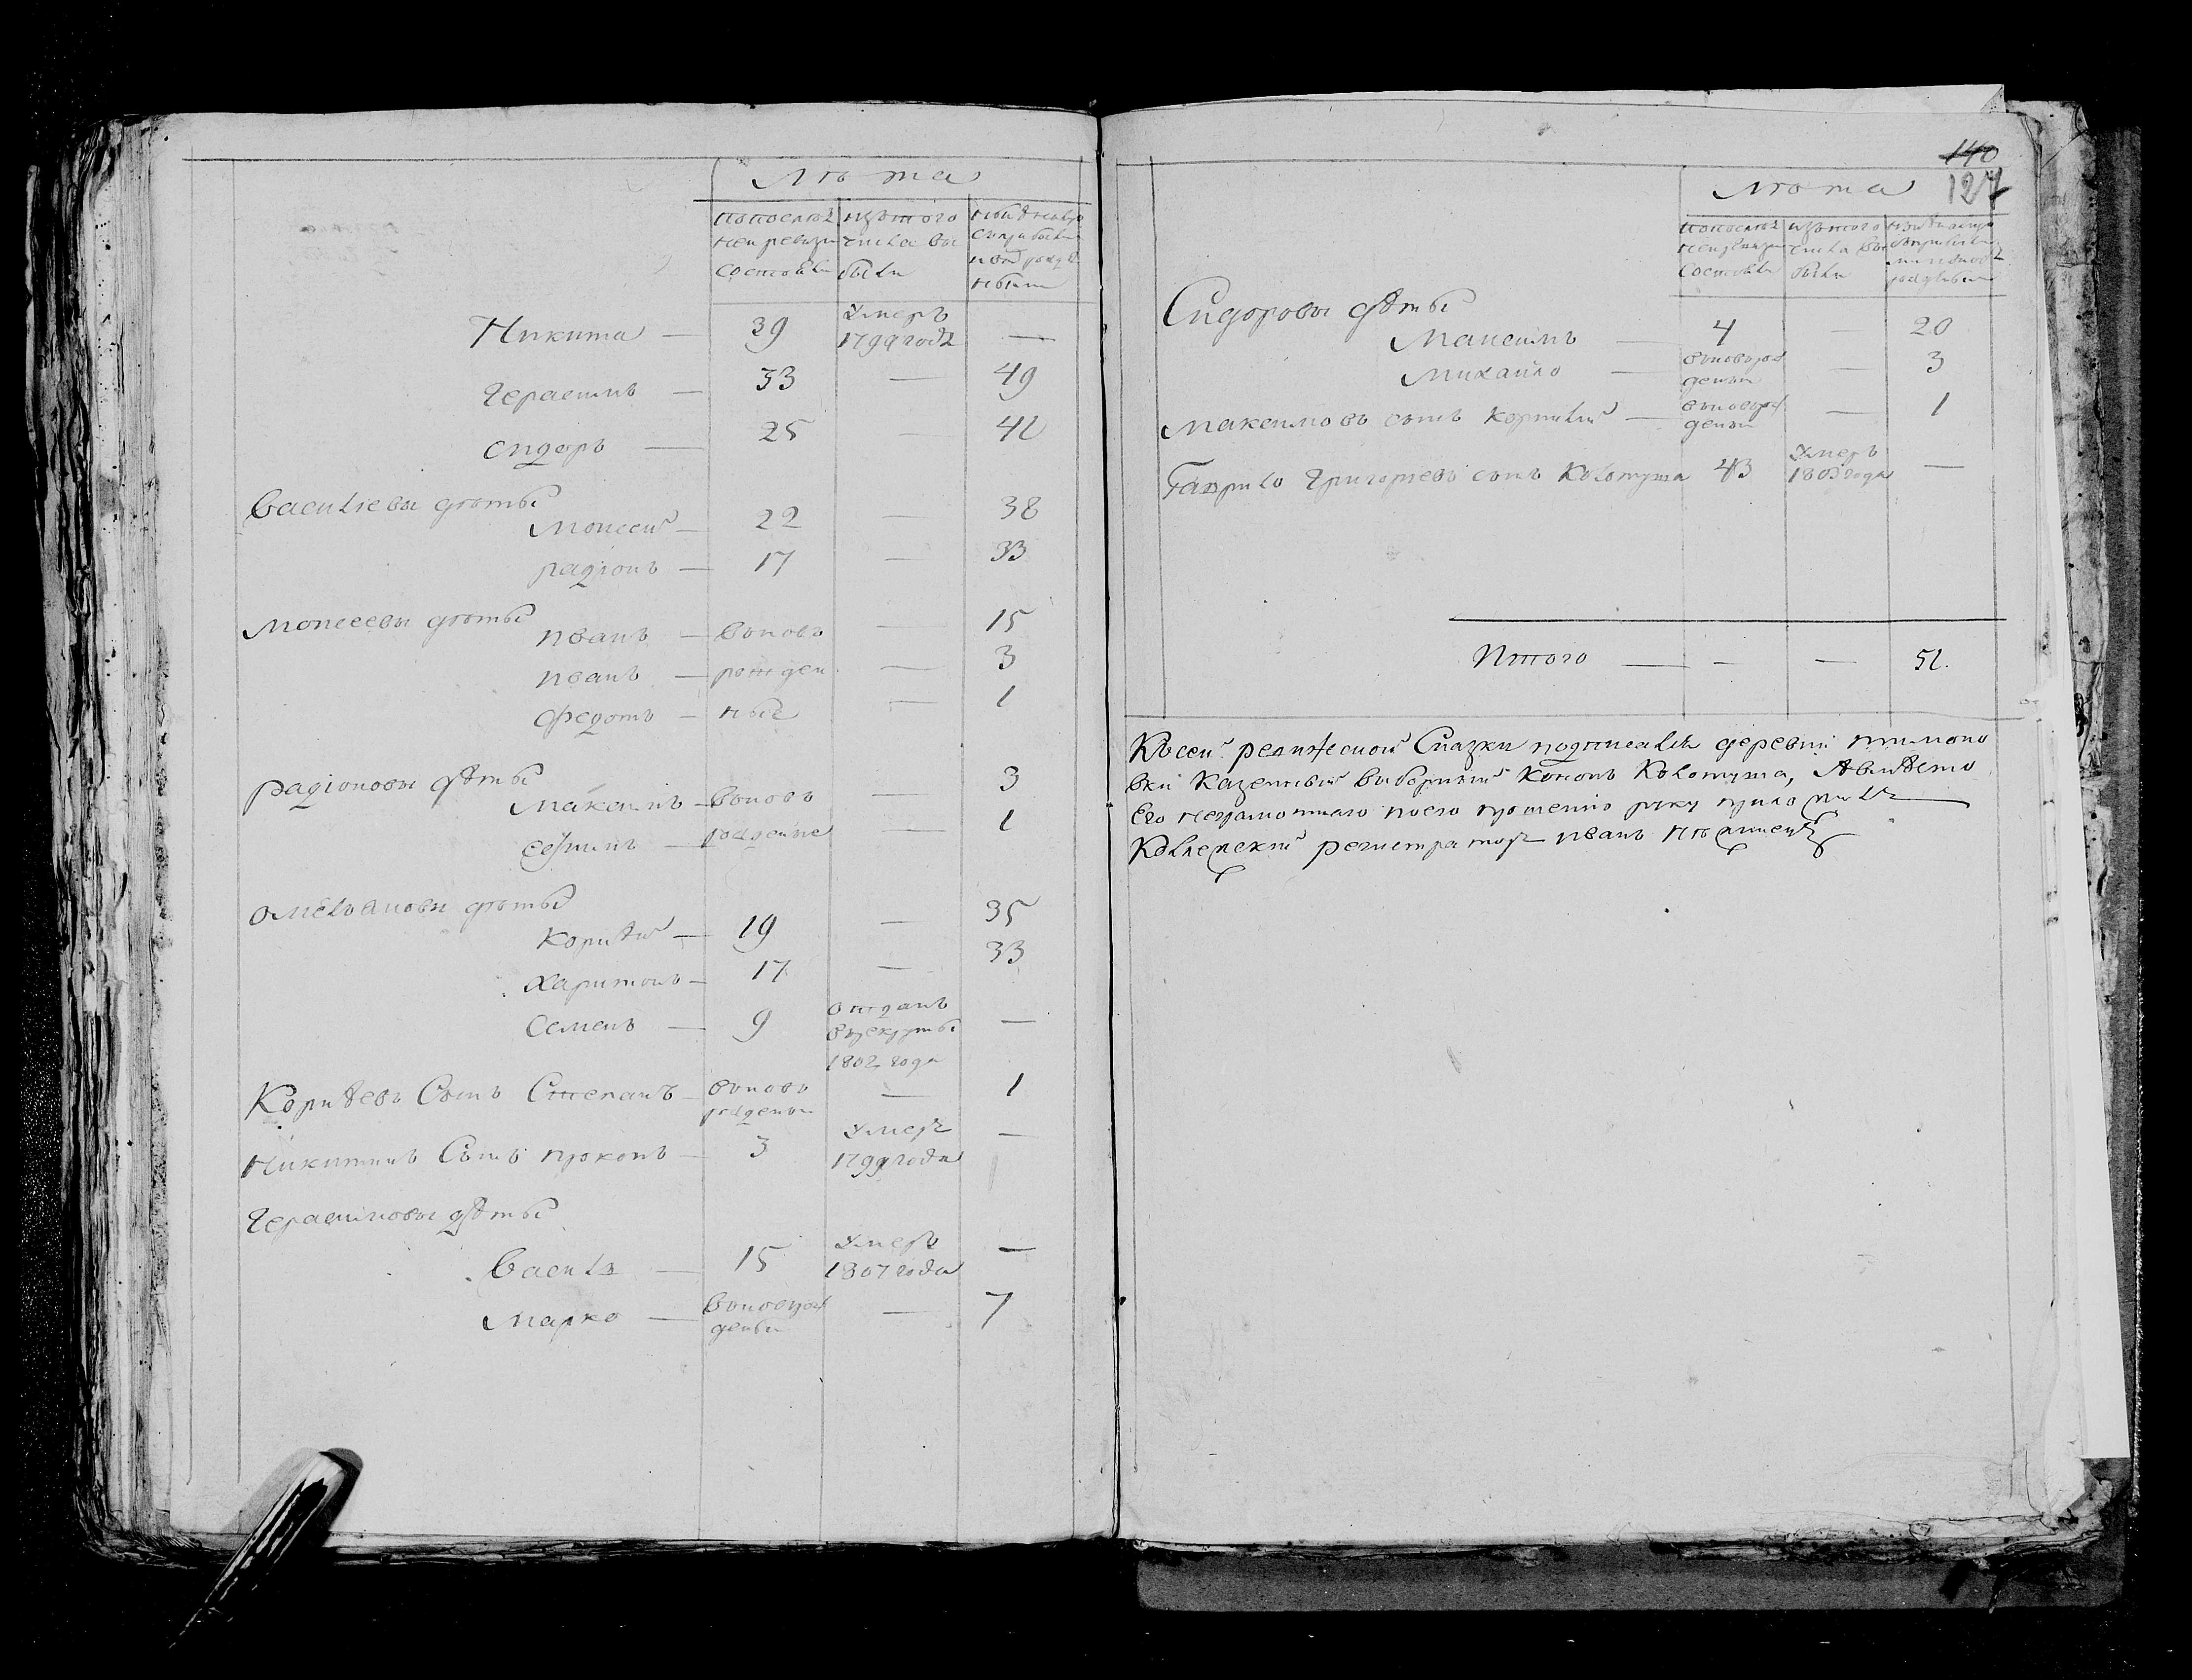 Лѣта
попослѣд
ней ревизи
состояли
изътого
числа вы
были
Никита — 39 умеръ 1799 годѣ —
Герасимъ — 33 — 49
Сидоръ — 25 — 41
Васильевы дѣты
Моисей — 22 — 38
радіонъ — 17 — 33
Моисеевы дѣты
иванъ — вьновь — 15
иванъ — рожден — 3
Федотъ — ные — 1
радіоновы дѣты
Максимъ — вьновь — 3
ефимъ — рожденые — 1
Омельяновы дѣты
Корнѣй — 19 — 35
Харитонъ — 17 — 33
Семенъ — 9 отданъ
врекруты —
1802 года
Корнѣевъ Сынъ Степанъ — вьновь
рожденый — 1
Никитинъ Сынъ прокопъ — 3 умеръ
1799 года —
Герасимовы дѣты
Василь — 15 умеръ
1807 года —
Марко — вьноврож
деный — 7
140
127
Лѣта
попослѣд
ней ревизи
состояли
изътого
числа вы
были
Сидоровы дѣты
Максимъ — 4 — 20
Михайло — вьноврож
деный — 3
Максимовъ сынъ Корнилій — вьноврож
деный — 1
Гаврило Григорьевъ сынъ Коломуша 43 умеръ
1803 года —
Итого — — — 51.
Къ сей ревижской Сказки подписалъ деревни тимоно
вки Казенный выборный Кононъ Коломуша, Авмѣсто
Его неграмотнаго поего прошенію руку приложилъ
Колежский регистраторъ иванъ